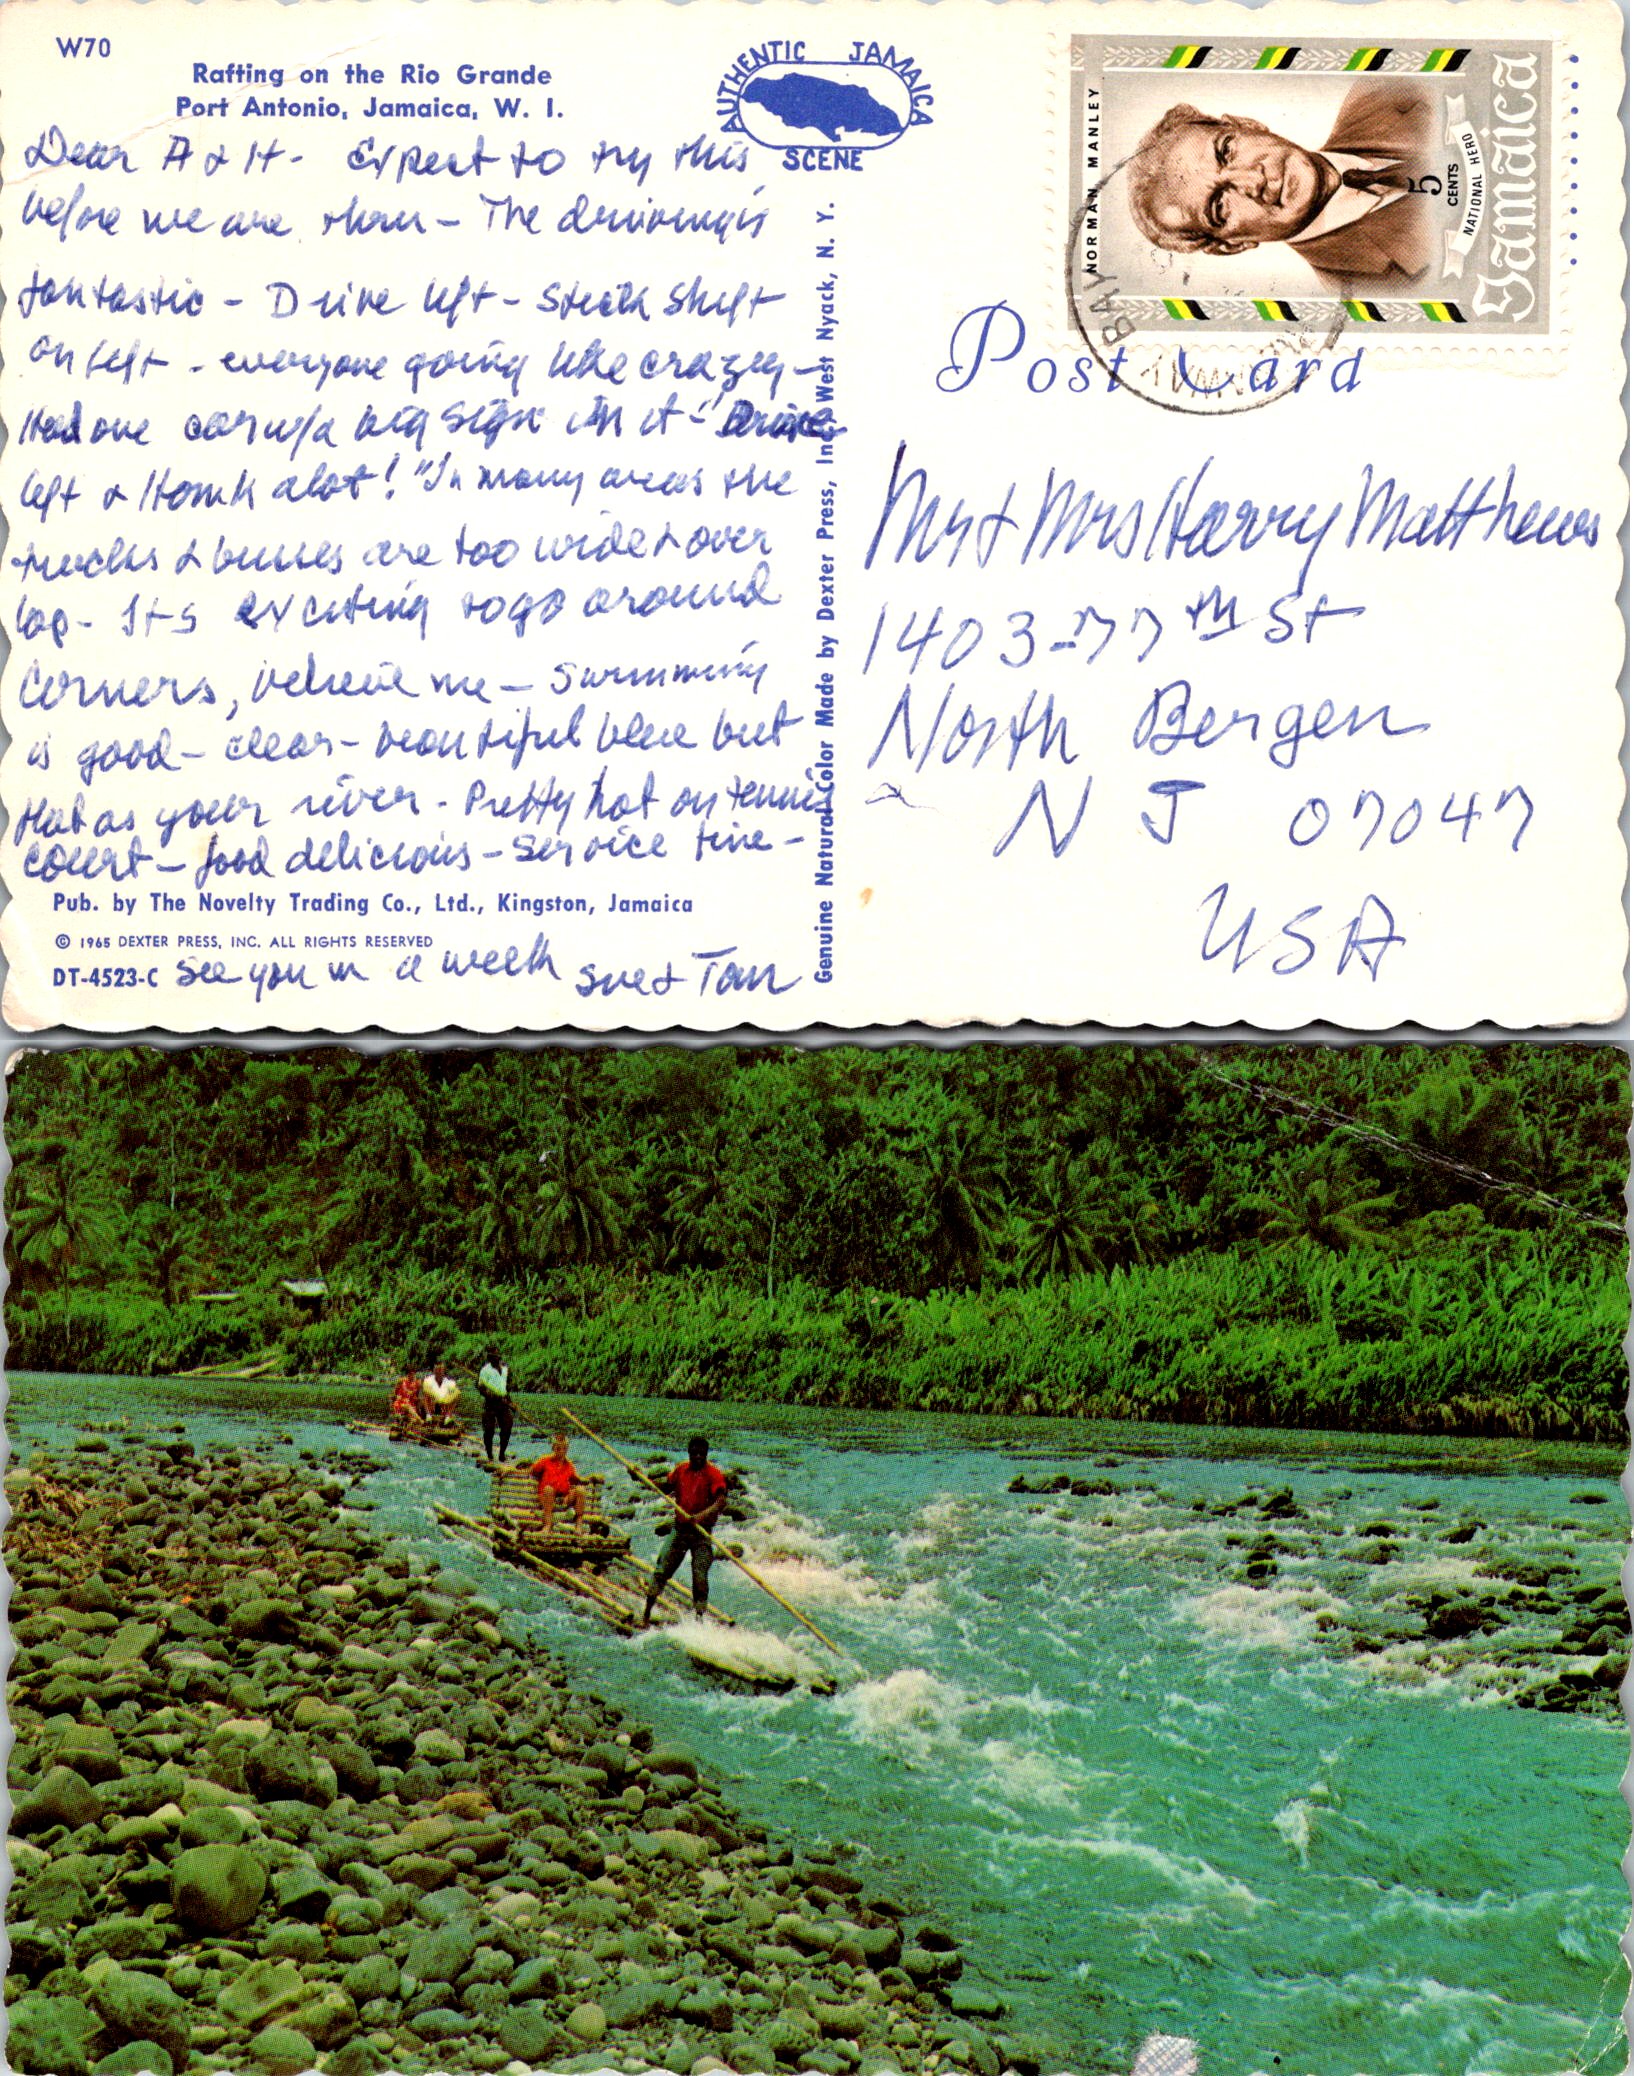 W70
Rafting on the Rio Grande
Port Antonio, Jamaica, W. I.
AUTHENTIC JAMAICA
SCENE
Dear A & H - Expect to try this
before we are thru - The driving is
fantastic - Drive left - Stick shift
on left - everyone going like crazy -
Had one car w/a big sign on it - "Drive
left & Honk alot!" In many areas the
trucks & busses are too wide & over
lap - Its exciting to go around
Corners, believe me - Swimming
is good - clear - beautiful blue but
Hot as your river - Pretty hot on tennis
court - food delicious - Service fine -
Pub. by The Novelty Trading Co., Ltd., Kingston, Jamaica
© 1965 DEXTER PRESS, INC. ALL RIGHTS RESERVED
DT-4523-C
See you in a week Sue & Tom
Genuine Natural Color Made by Dexter Press, Inc., West Nyack, N. Y.
NORMAN MANLEY
5
CENTS
NATIONAL HERO
Jamaica
BAY
Post Card
Mr & Mrs Harry Matthews
1403-77th St
North Bergen
N J 07047
USA